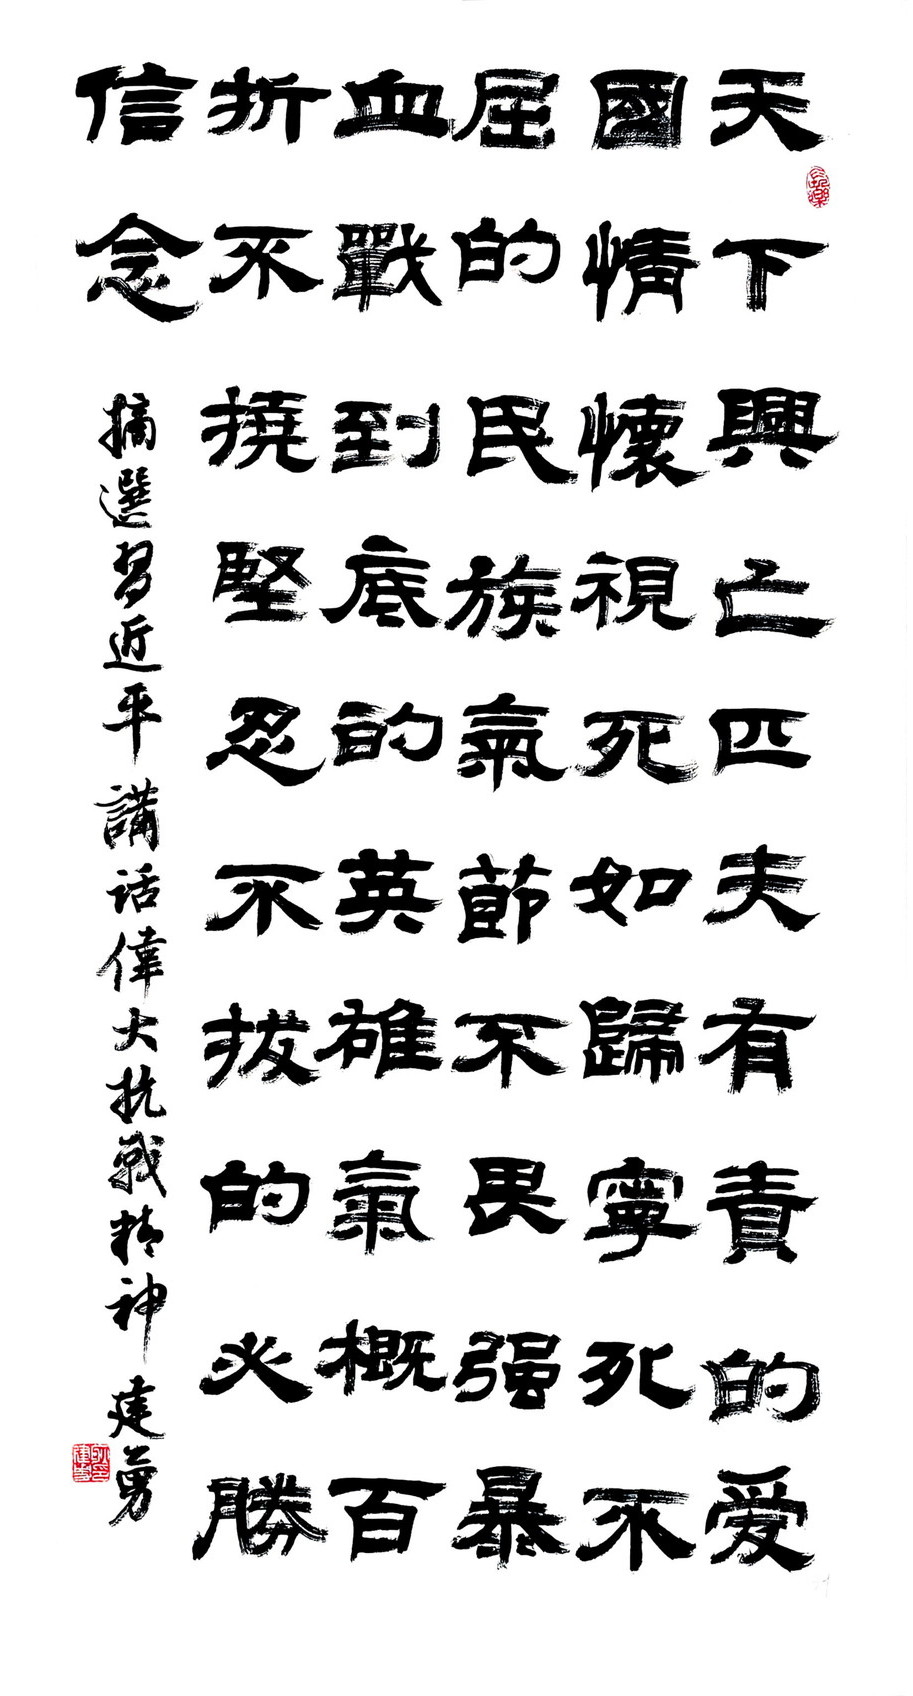 天下興亡匹夫有責的爱
國情懷視死如歸寧死不
屈的民族氣節不畏强暴
血戰到底的英雄氣概百
折不撓堅忍不拔的必勝
信念
摘選習近平講话偉大抗戰精神 建勇